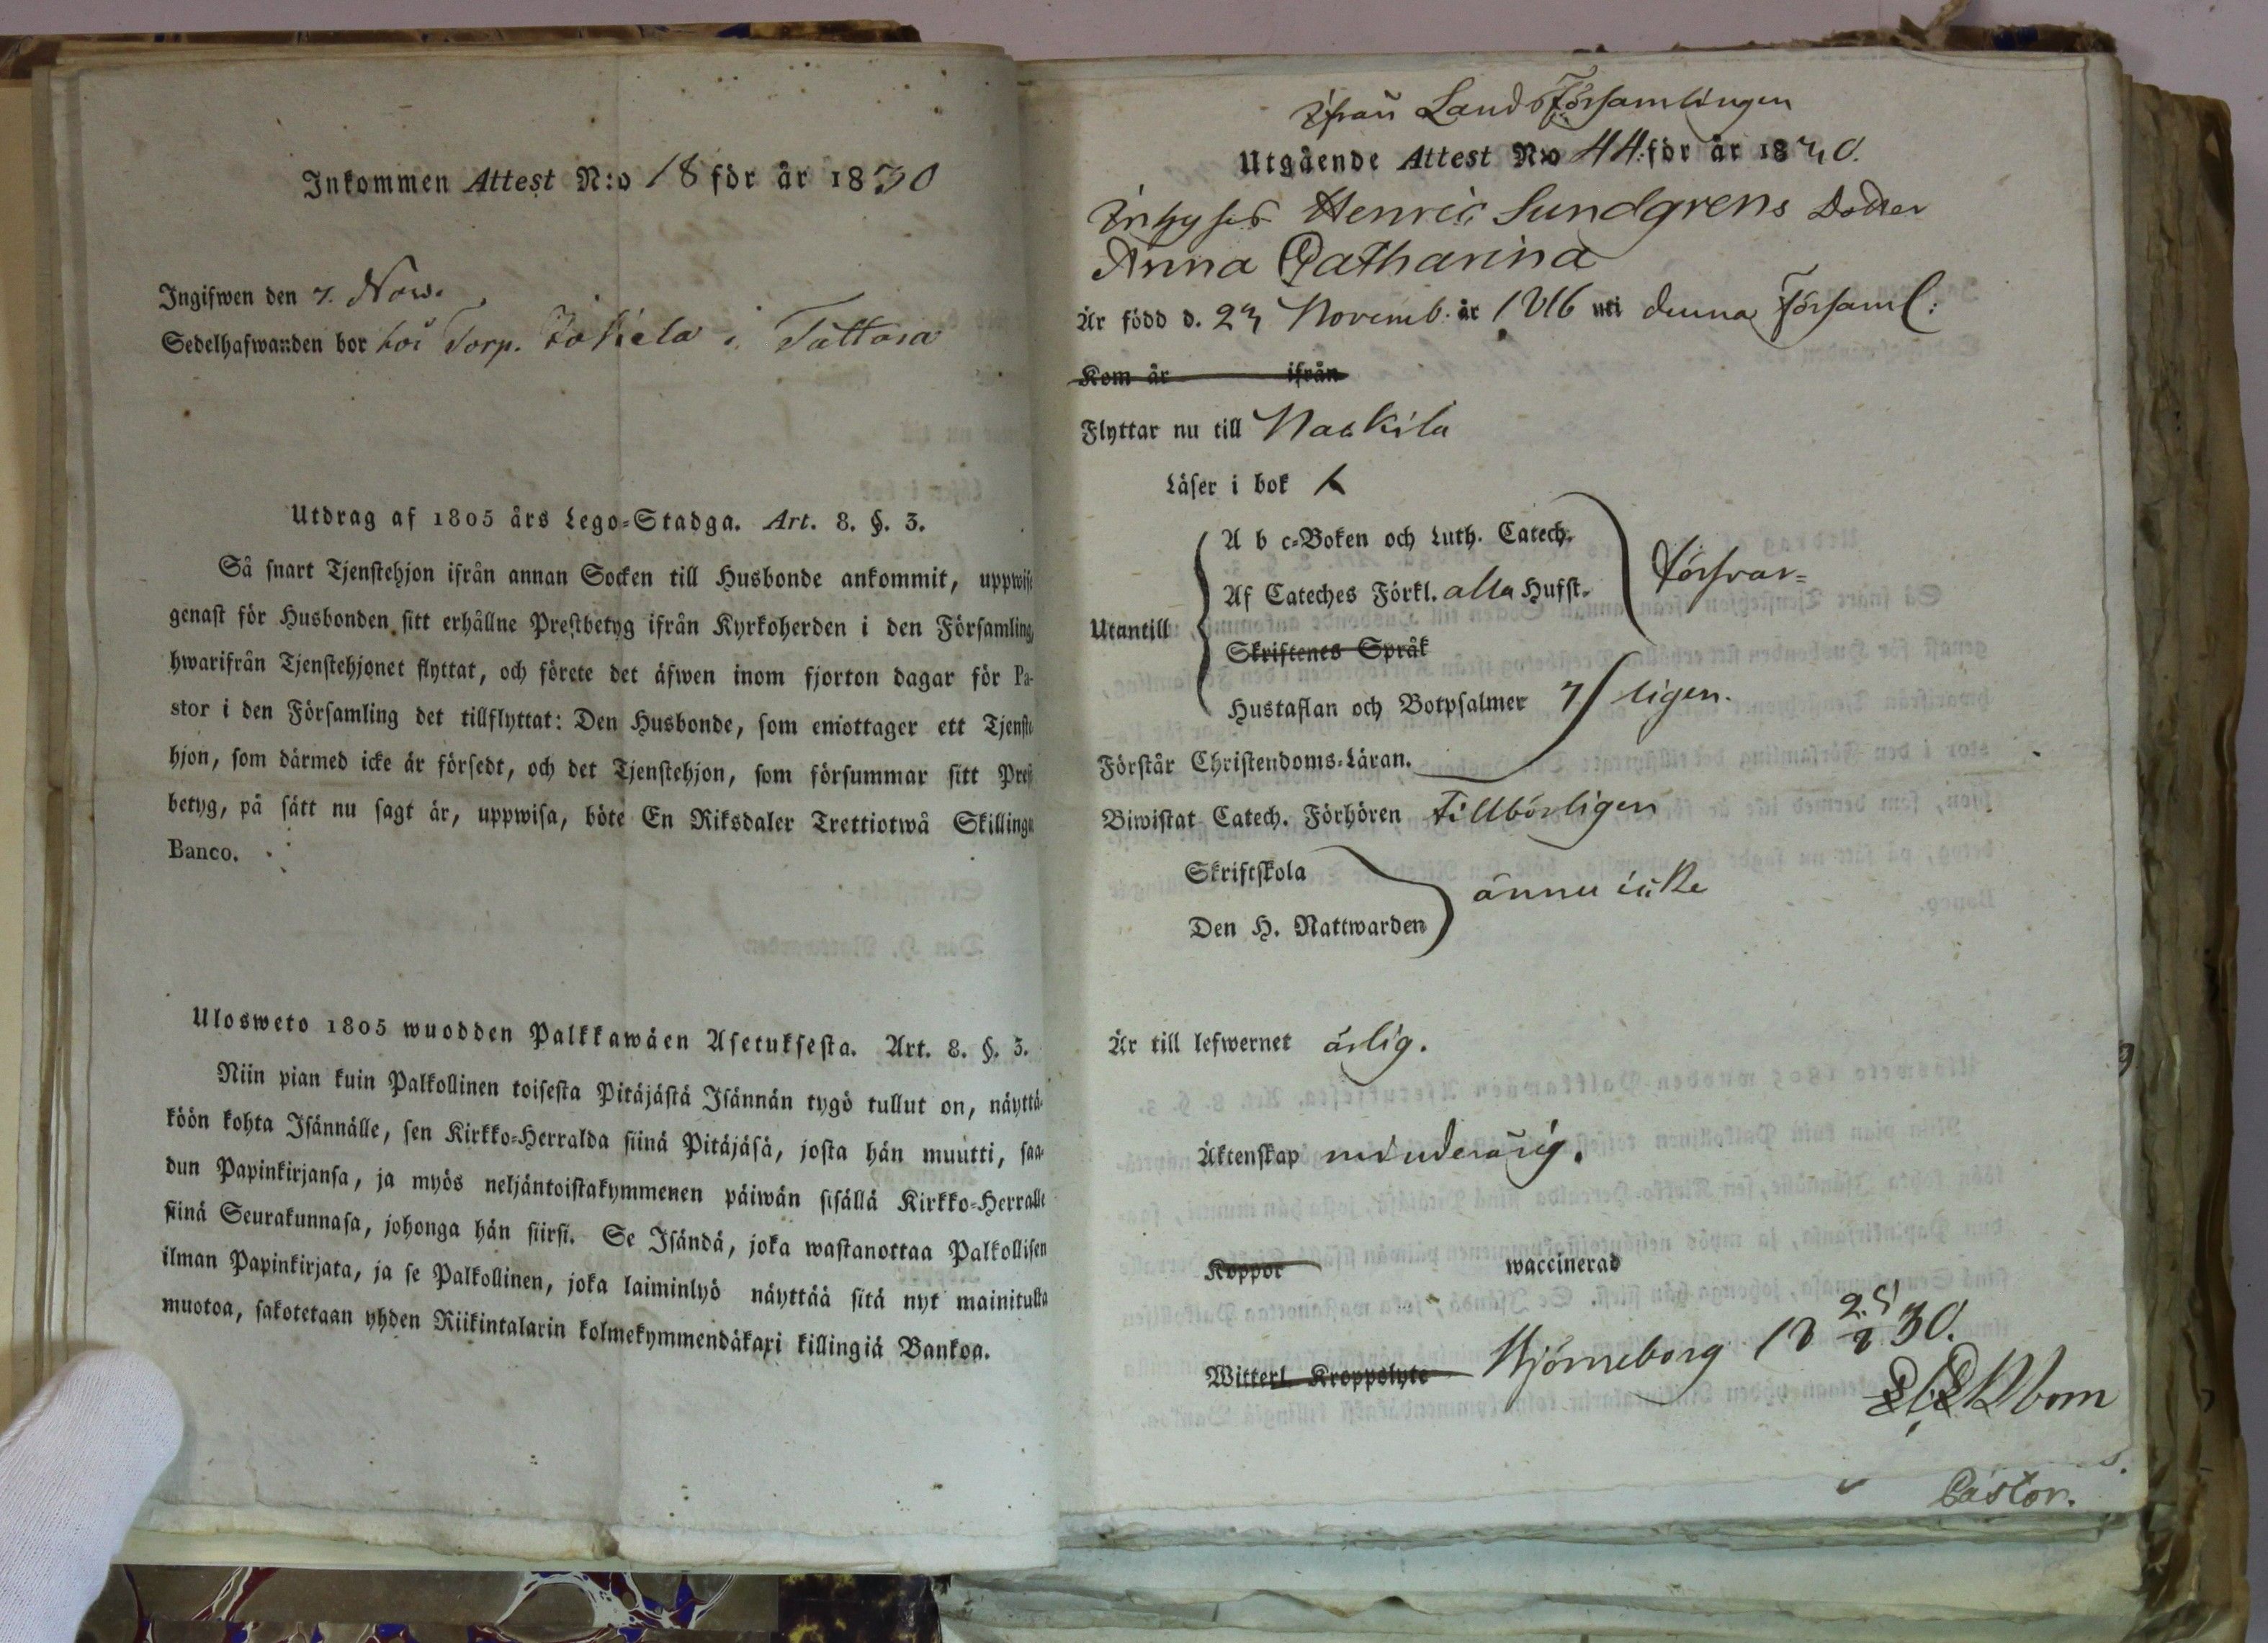 Inkommen Attest N:o 18 för år 1830
Ingifwen den 7. Nov.
Sedelhafwanden bor hos Torp. Jokela i Tattara
Utdrag af 1805 års Lego-Stadga. Art. 8. §. 3.
Så snart Tjenstehjon ifrån annan Socken till Husbonde ankommit, uppwise
genast för Husbonden sitt erhållne Prestbetyg ifrån Kyrkoherden i den Församling,
hwarifrån Tjenstehjonet flyttat, och förete det äfwen inom fjorton dagar för Pa-
stor i den Församling det tillflyttat: Den Husbonde, som emottager ett Tjenste
hjon, som därmed icke är försedt, och det Tjenstehjon, som försummar sitt Prest
betyg, på sätt nu sagt är, uppwisa, böte En Riksdaler Trettiotwå Skillingar
Banco.
Ulosweto 1805 wuodden Palkkawäen Asetuksesta. Art. 8. §. 3.
Niin pian kuin Palkollinen toisesta Pitäjästä Isännän tygö tullut on, näyttä-
köön kohta Isännälle, sen Kirkko-Herralda siinä Pitäjäsä, josta hän muutti, saa-
dun Papinkirjansa, ja myös neljäntoistakymmenen päiwän sisällä Kirkko-Herralle
siinä Seurakunnasa, johonga hän siirsi. Se Isändä, joka wastanottaa Palkollisen
ilman Papinkirjata, ja se Palkollinen, joka laiminlyö näyttää sitä nyt mainitulla
muotoa, sakotetaan yhden Riikintalarin kolmekymmendäkaxi killingiä Bankoa.
ifrån Landsförsamlingen
Utgående Attest N:o 44 för år 1830.
Inhyses Henric Sundgrens Dotter
Anna Catharina
Är född d. 23 Novemb. år 1816 uti denna Församl:
Kom år ifrån
Flyttar nu till Nakkila
Läser i bok
A b c-Boken och Luth. Catech.
Af Cateches Förkl. alla Hufst.
försvar=
Utantill
Skriftenes Språk
Hustaflan och Botpsalmer 7 ligen.
Förstår Christendoms-Läran.
Biwistat Catech. Förhören tillbörligen
Skriftskola
ännu icke
Den H. Nattwarden
Är till lefwernet ärlig.
Äktenskap minderårig.
Koppor waccinerad
Witterl. Kroppslyte Björneborg 18 30.
Pastor.